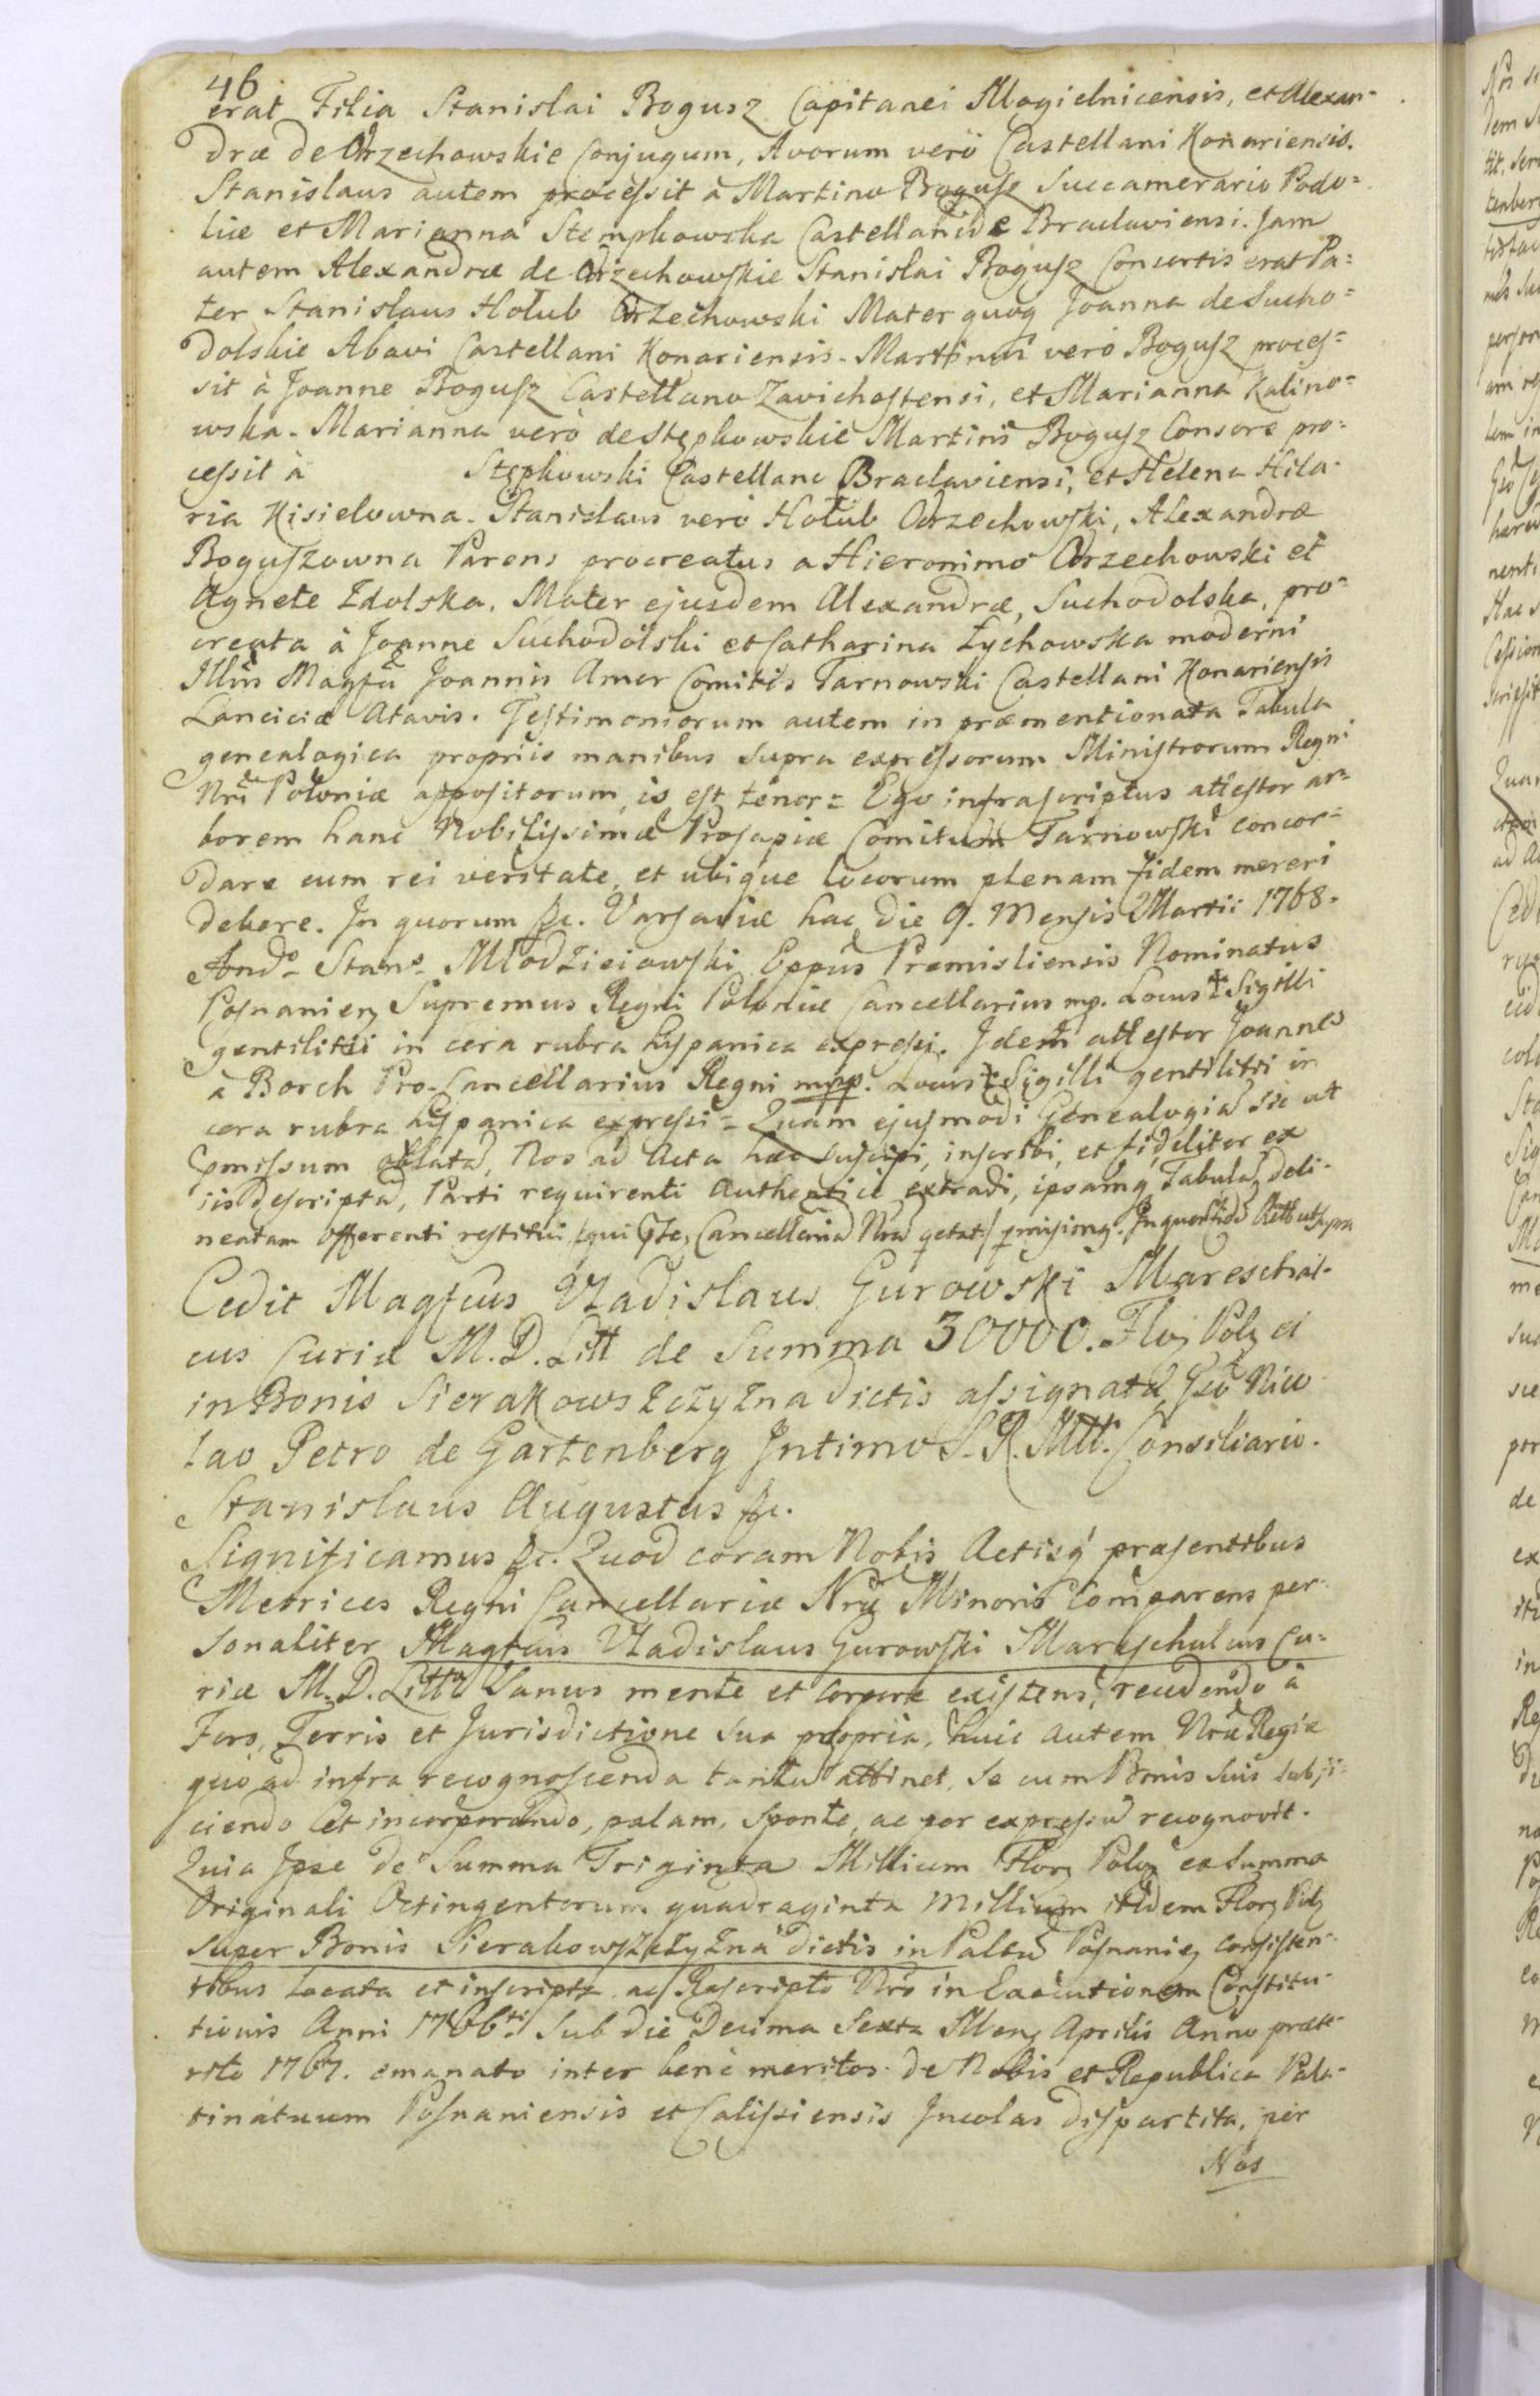 46
erat Filia Stanislai Bogusz Capitanei Mogielnicensis, et Alexan-
dræ de Orzechowskie Conjugum, Avorum verò Castellani Konariensis.
Stanislaus autem processit à Martino Bogusz Succamerario Podo=
liæ et Marianna Stempkowska Castellanide Braclaviensi. Jam
autem Alexandræ de Orzechowskie Stanislai Bogusz Consortis erat Pa=
ter Stanislaus Hołub Orzechowski Mater quoq Joanna de Sucho=
dolskie Abavi Castellani Konariensis. Martinus verò Bogusz proces=
sit à Joanne Bogusz Castellano Zavichostensi, et Marianna Kalino=
wska. Marianna verò de Stępkowskie Martini Bogusz Consors pro=
cessit à Stępkowski Castellano Braclaviensi, et Helena Hila-
ria Kisielowna. Stanislaus verò Hołub Orzechowski, Alexandræ
Boguszowna Parens procreatus a Hieronimo Orzechowski et
Agnete Zdolska. Mater ejusdem Alexandræ, Suchodolska, pro=
creata à Joanne Suchodolski et Catharina Łychowska moderni
Illüs Magfci Joannis Amor Comitis Tarnowski Castellani Konariensis
Lanciciæ Atavis. Testimoniorum autem in præmentionata Tabula
genealogica propriis manibus supra expressorum Ministrorum Regni
Nri Poloniæ appositorum, is est tenor = Ego infrascriptus attestor ar=
borem hanc Nobilissimæ Prosapiæ Comitum Tarnowski concor=
dare cum rei veritate, et ubique locorum plenam fidem mereri
debere. In quorum &c. Varsaviæ hac die 9. Mensis Martii 1768.
Ando. Stans. Młodzieiowski Eppus Premisliensis Nominatus
Posnanien Supremus Regni Poloniæ Cancellarius mp. Locus ✝ Sigilli
gentilitii in cera rubra hispanica expressi. Idem attestor Joannes
à Borch Pro-Cancellarius Regni mpp. Locus ✝ Sigilli gentilitii in
cera rubra hispanica expressi = Quam ejusmodi Genealogia sic ut
pmissum oblata, Nos ad Acta hæc suscipi, inscribi, et fideliter ex
iis descripta, Parti requirenti authentice extradi, ipsamq Tabula deli-
neatam offerenti restitui
Cedit Magfcus Vladislaus Gurowski Mareschal-
cus Curiæ M. D. Litt de Summa 30000. Flo. Pol. ei
in Bonis Sierakowszczyzna dictis assignata, Gso Nico
lao Petro de Gartenberg Intimo S. R. Mtt. Consiliario.
Stanislaus Augustus &c.
Significamus &c. Quod coram Nobis Actisq præsentibus
Metrices Regni Cancellariæ Nræ Minoris Comparens per-
sonaliter Magfcus Vladislaus Gurowski Mareschalcus Cu=
riæ M. D. Litt Sanus mente et corpore existens, recedendo à
Foro, Terris et Jurisdictione sua propria, huic autem Nræ Regiæ
quo ad infra recognoscenda tantu attinet, se cum Bonis suis subji=
ciendo et incorporando, palam, sponte, ac per expressu recognovit.
Quia Ipse de Summa Triginta Millium Flor. Pol. ex Summa
Originali Octingentorum quadraginta Millium itidem Flor. Pol.
super Bonis Sierakowszczyzna dictis in Paltu Posnanien consisten-
tibus locata et inscripta ac Rescripto Nro in Executionem Constitu-
tionis Anni 1766ti Sub die Decima Sexta Men. Aprilis Anno præte-
rito 1767. emanato inter bene meritos de Nobis et Republica Pala-
tinatuum Posnaniensis et Calissiensis Incolas dispartita, per
Nos